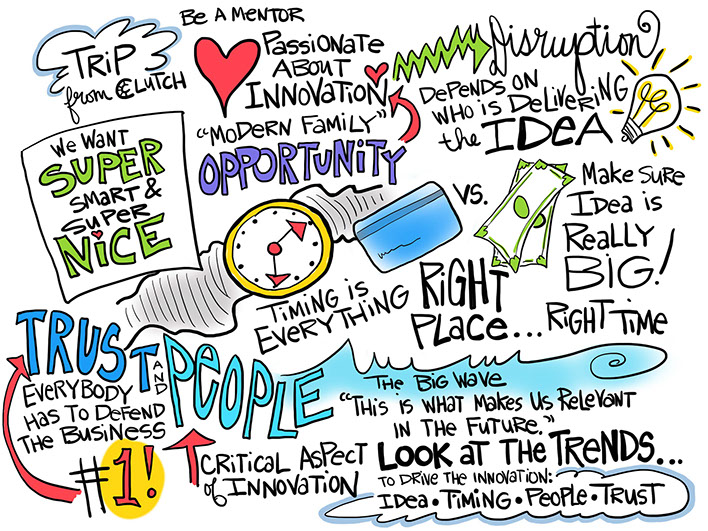 Be A MENTOR
TRiP
from CLUTCH
PASSiONATE
ABOUT
INNOVATiON
"MODERN FAMiLY"
OPPORTUNiTY
Disruption
DePeNDS ON
WHO iS DeLiVERiNG
the IDEA
We WANT
SUPER
SMART &
SUPER
NiCE
VS.
MAKe SURe
IDea iS
ReaLLY
BiG!
TiMiNG iS
EVERYTHiNG
RiGHT
PLACe... RiGHT TiMe
TRUST
AND
PeOPLE
EVERYBODY
HAS TO DeFeND
THe BUSiNeSS
#1!
CRiTiCAL ASPeCT
of INNOVATiON
THe BiG WAVe
"THiS iS WHAT MAKeS US ReLeVANT
iN THE FUTURe."
LOOK AT THE TReNDS...
TO DRiVe THe INNOVATiON:
IDea • TiMiNG • PeOPLe • TRUST